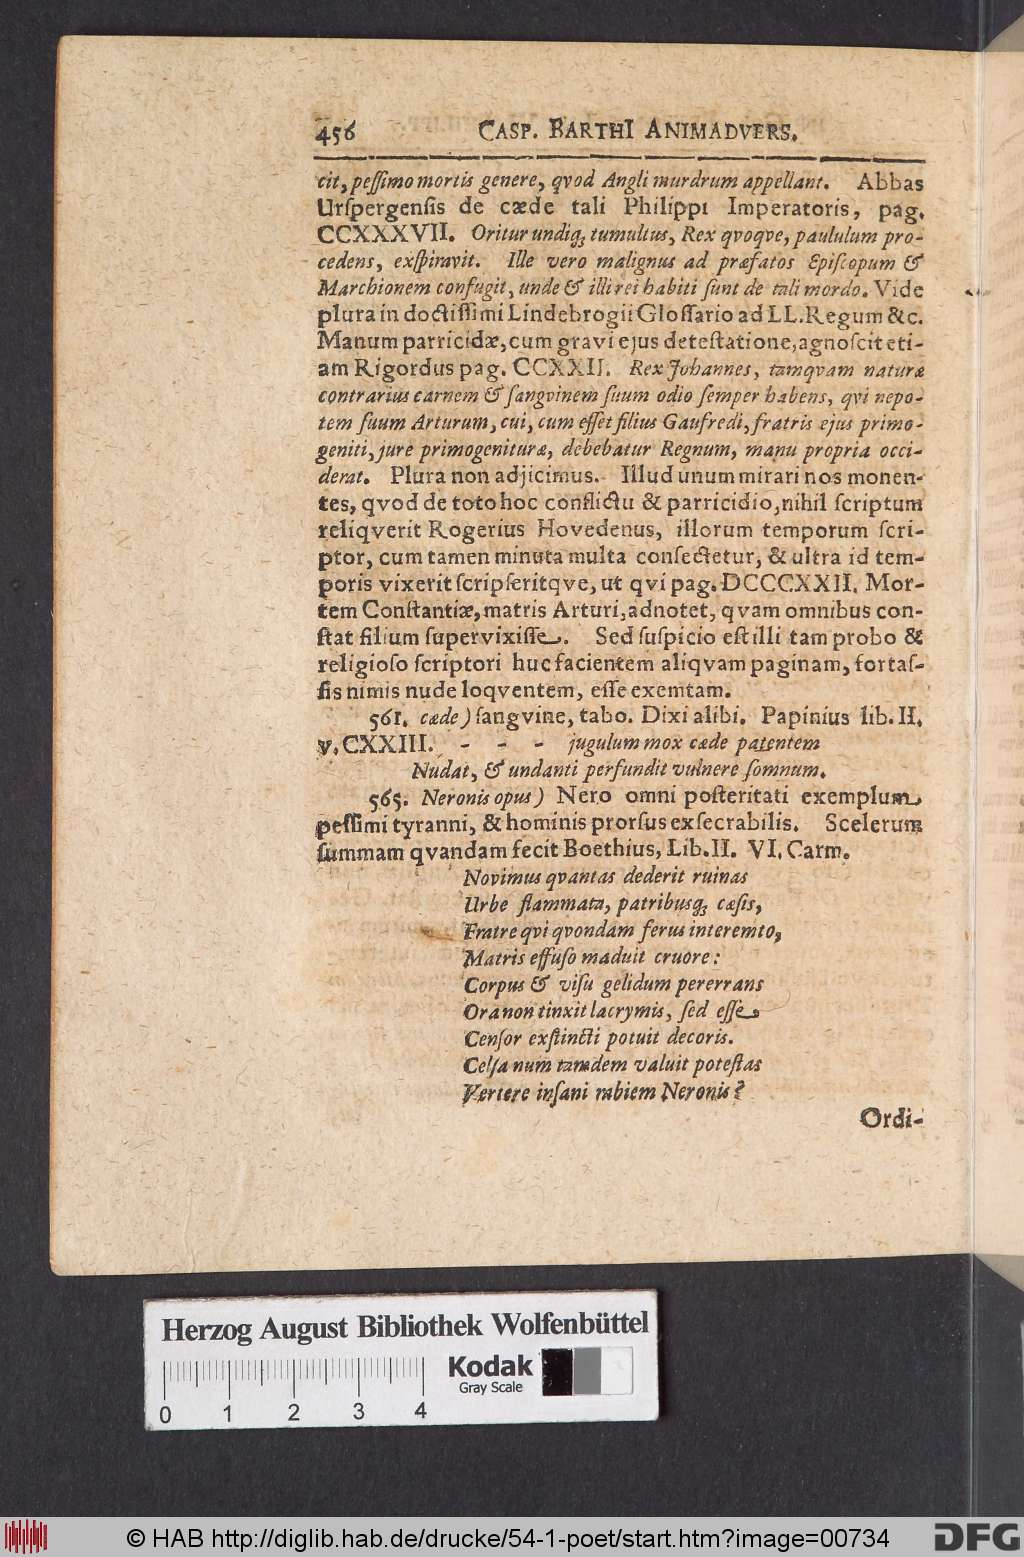 456 CASP. BARTHI ANIMADVERS.
cit, peſſimo mortis genere, qvod Angli murdrum appellant. Abbas
Urſpergenſis de cæde tali Philippi Imperatoris, pag.
CCXXXVII. Oritur undiq; tumultus, Rex qvoqve, paululum pro-
cedens, exſpiravit. Ille vero malignus ad præfatos Epiſcopum &
Marchionem confugit, unde & illi rei habiti ſunt de tali mordo. Vide
plura in doctiſſimi Lindebrogii Gloſſario ad LL. Regum &c.
Manum parricidæ, cum gravi ejus deteſtatione, agnoſcit eti-
am Rigordus pag. CCXXII. Rex Johannes, tamqvam naturæ
contrarius carnem & ſangvinem ſuum odio ſemper habens, qvi nepo-
tem ſuum Arturum, cui, cum eſſet filius Gaufredi, fratris ejus primo-
geniti, jure primogenituræ, debebatur Regnum, manu propria occi-
derat. Plura non adjicimus. Illud unum mirari nos monen-
tes, qvod de toto hoc conflictu & parricidio, nihil ſcriptum
reliqverit Rogerius Hovedenus, illorum temporum ſcri-
ptor, cum tamen minuta multa conſectetur, & ultra id tem-
poris vixerit ſcripſeritqve, ut qvi pag. DCCCXXII. Mor-
tem Conſtantiæ, matris Arturi, adnotet, qvam omnibus con-
ſtat filium ſupervixiſſe. Sed ſuſpicio eſt illi tam probo &
religioſo ſcriptori huc facientem aliqvam paginam, fortaſ-
ſis nimis nude loqventem, eſſe exemtam.
561. cæde) ſangvine, tabo. Dixi alibi. Papinius lib. II.
v. CXXIII. - - - jugulum mox cæde patentem
Nudat, & undanti perfundit vulnere ſomnum.
565. Neronis opus) Nero omni poſteritati exemplum
peſſimi tyranni, & hominis prorſus exſecrabilis. Scelerum
ſummam qvandam fecit Boethius, Lib. II. VI. Carm.
Novimus qvantas dederit ruinas
Urbe flammata, patribusq; cæſis,
Fratre qvi qvondam ferus interemto,
Matris effuſo maduit cruore:
Corpus & viſu gelidum pererrans
Ora non tinxit lacrymis, ſed eſſe
Cenſor exſtincti potuit decoris.
Celſa num tamdem valuit poteſtas
Vertere inſani rabiem Neronis?
Ordi-
Herzog August Bibliothek Wolfenbüttel
Kodak
Gray Scale
0 1 2 3 4
© HAB http://diglib.hab.de/drucke/54-1-poet/start.htm?image=00734
DFG